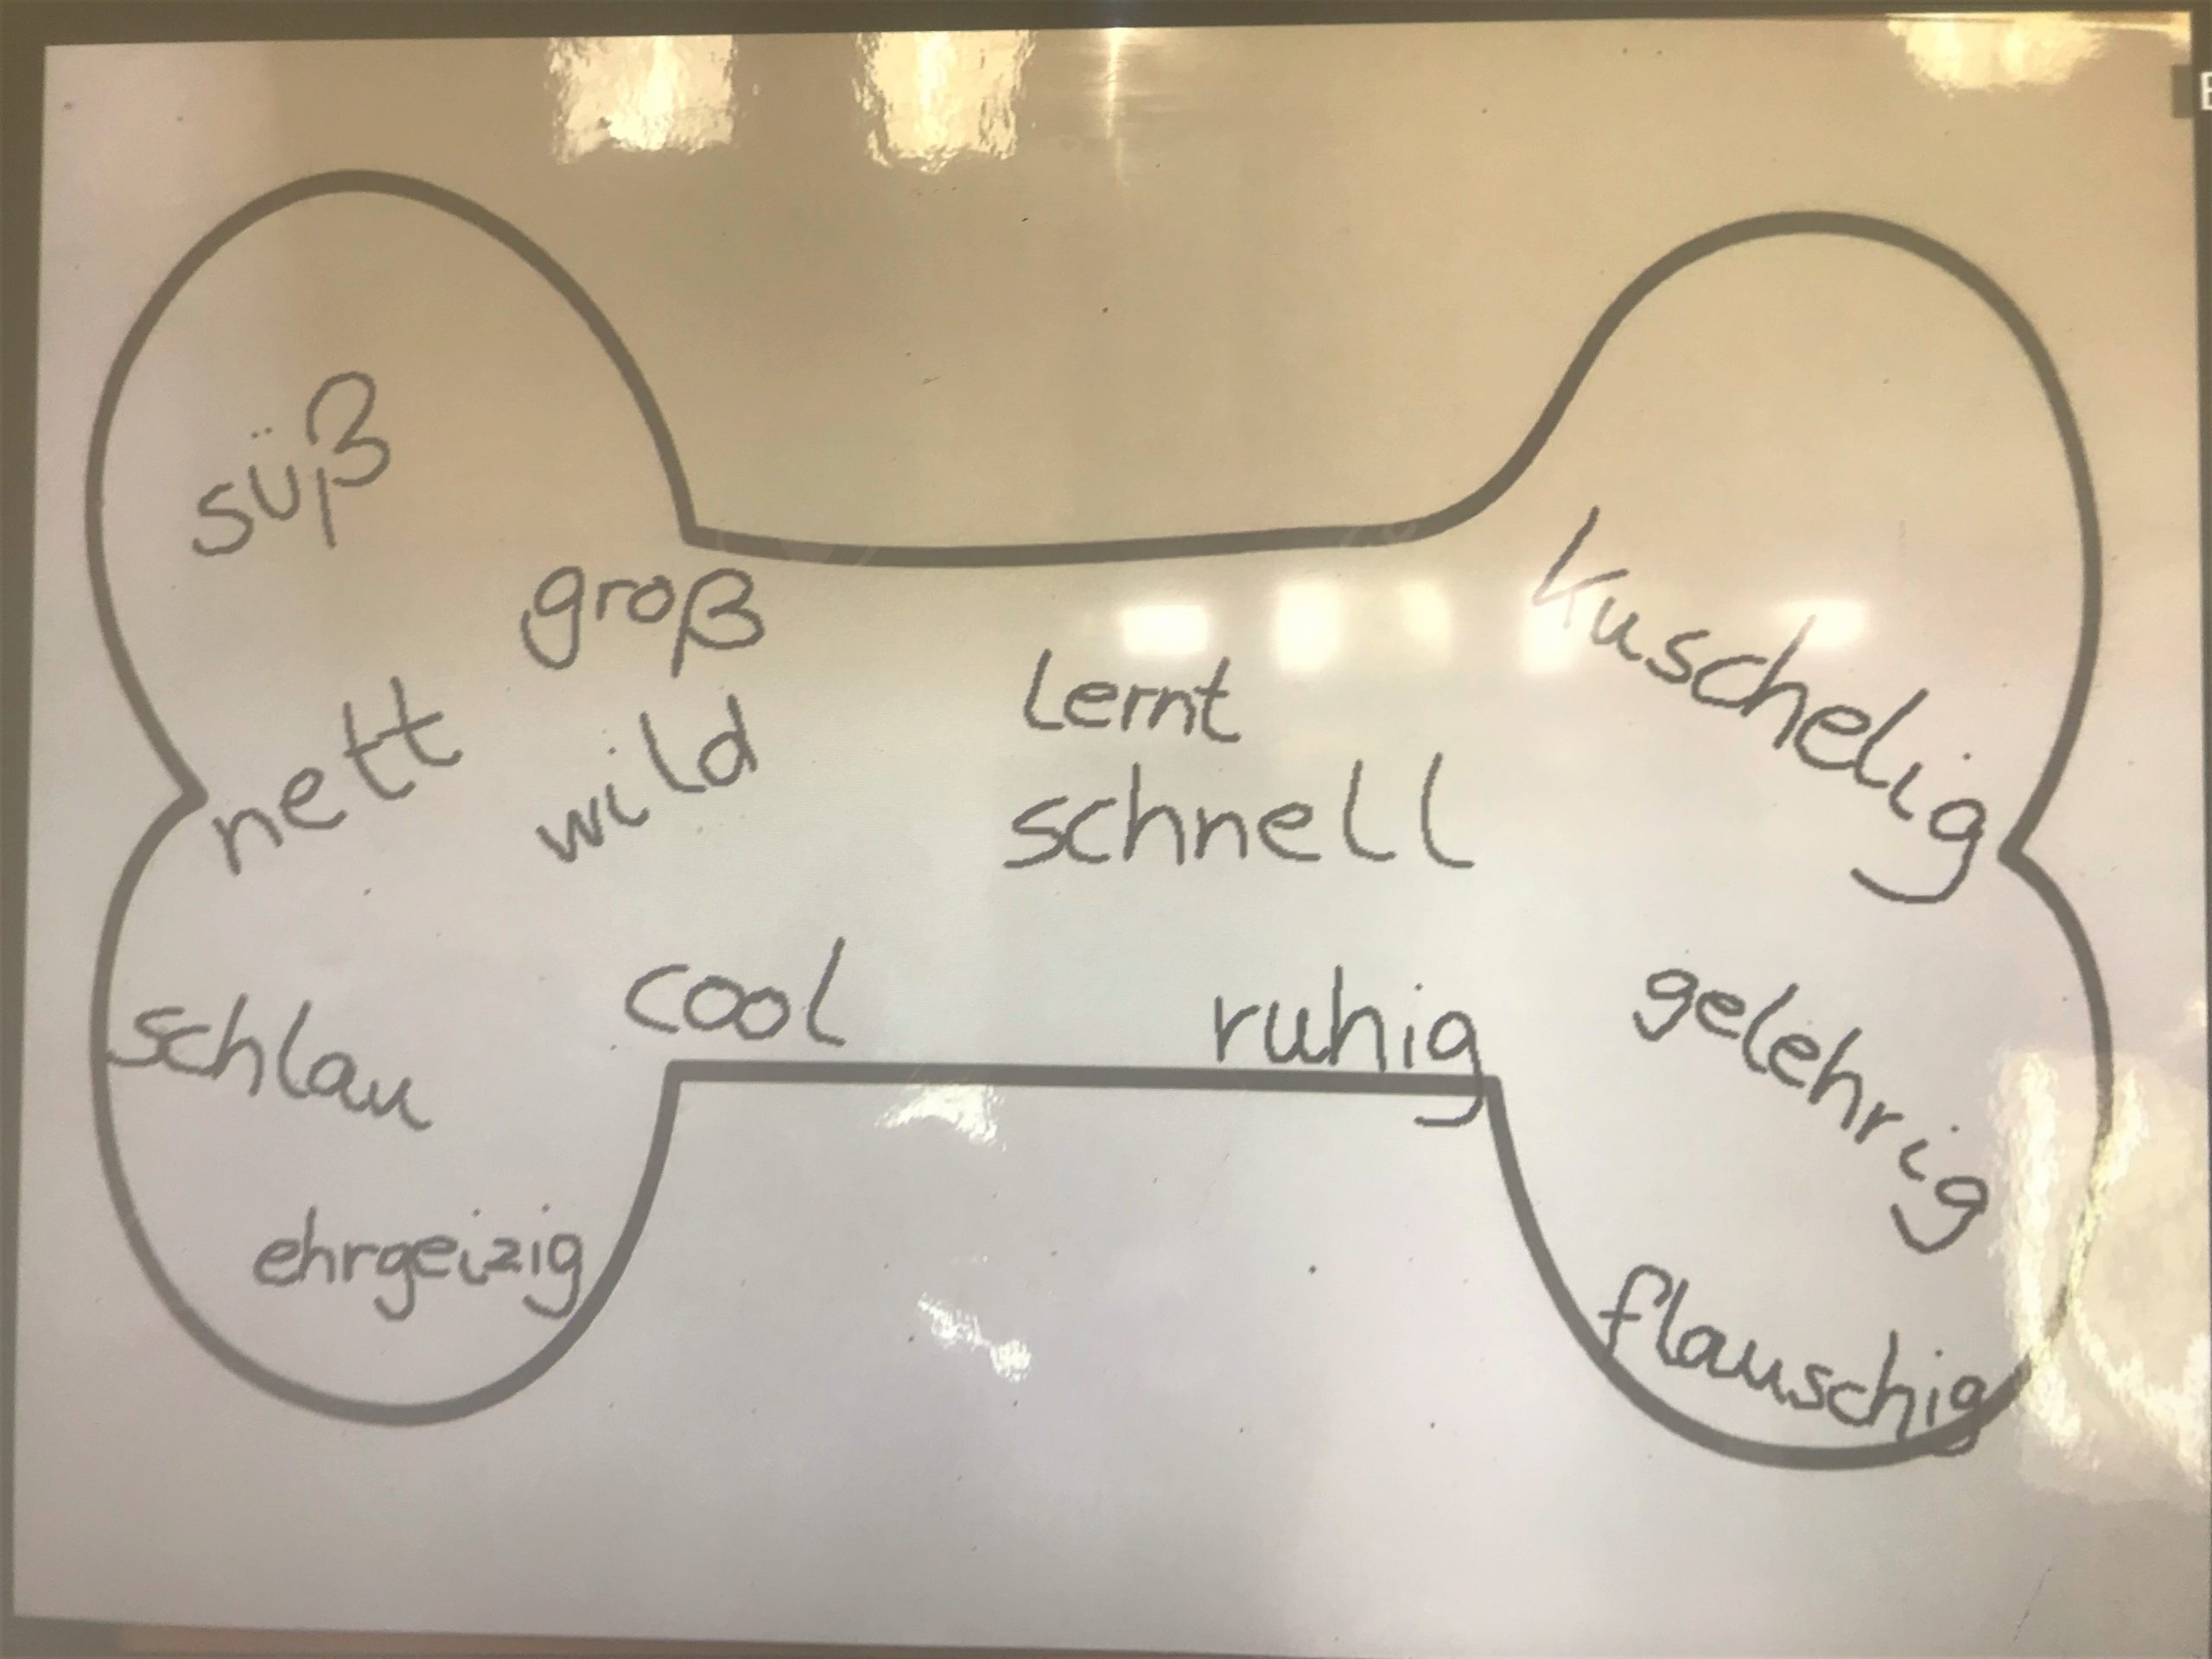 süß
groß
nett
wild
lernt
schnell
kuschelig
schlau
cool
ruhig
gelehrig
ehrgeizig
flauschig